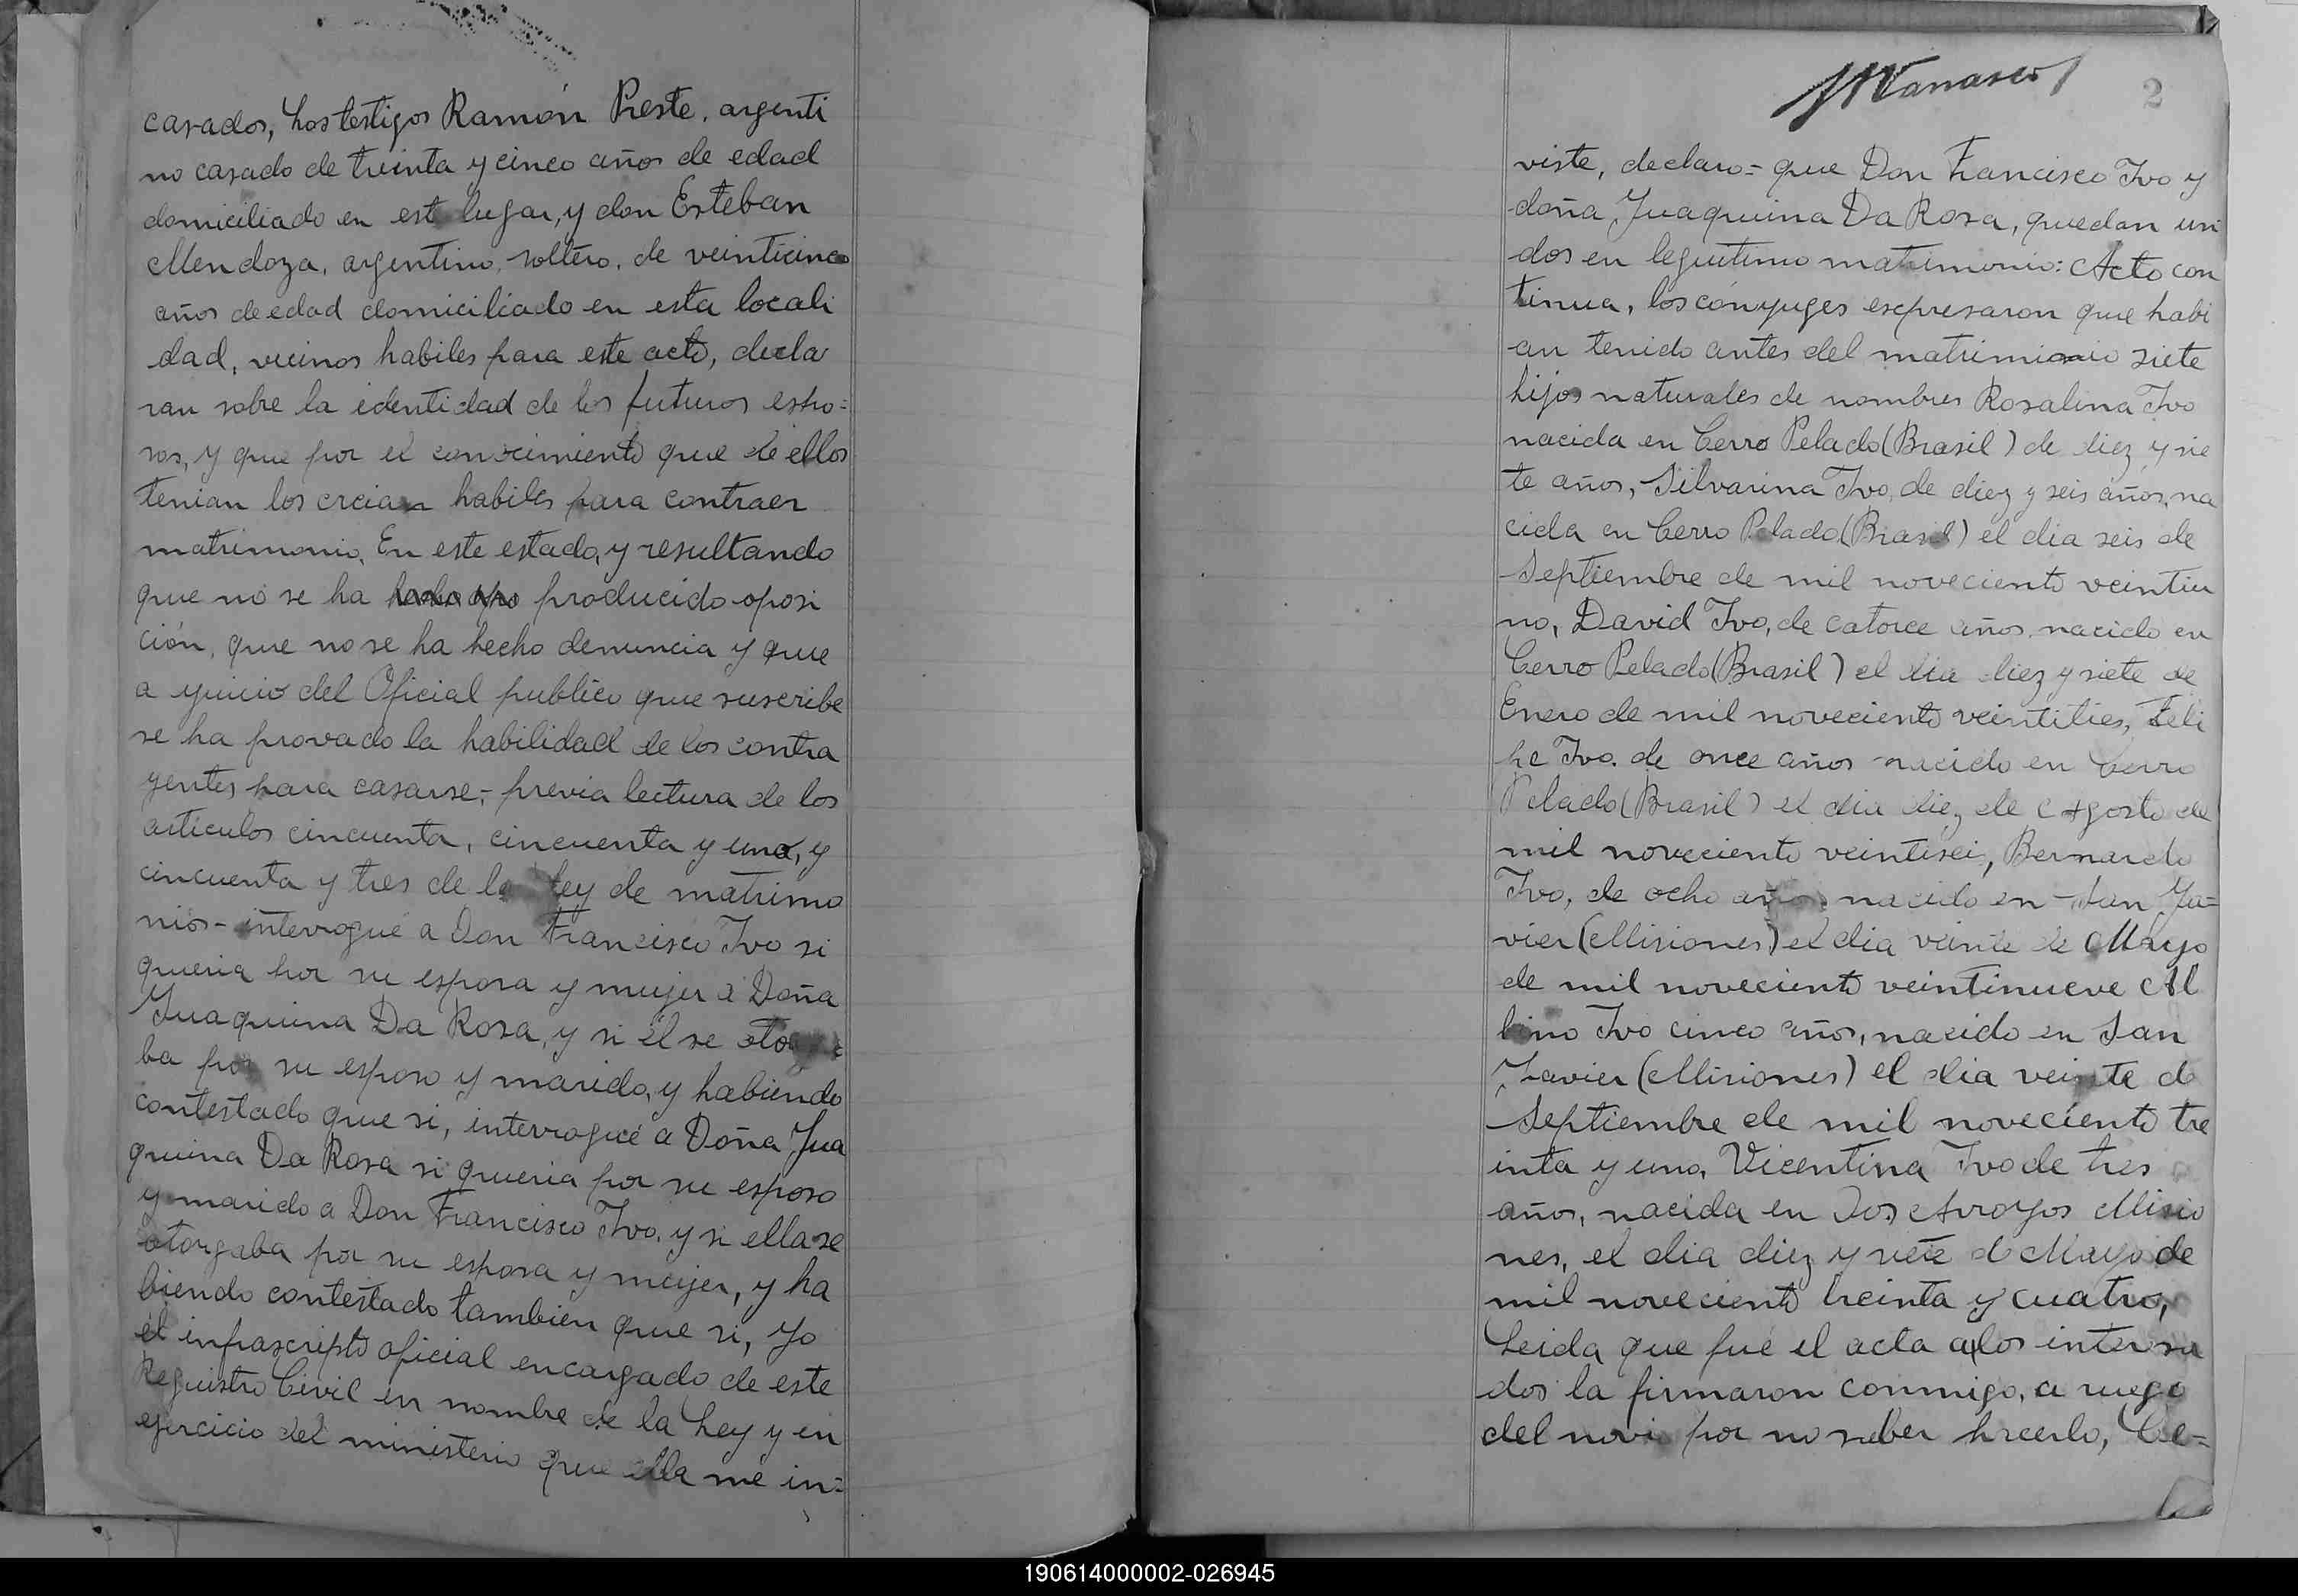 casados, Los testigos Ramón Preste, argenti
no casado de treinta y cinco años de edad
domiciliado en este lugar, y don Esteban
Mendoza, argentino, soltero, de veinticinco
años de edad domiciliado en esta locali
dad, vecinos habiles para este acto, decla
ran sobre la identidad de los futuros espo=
sos, y que por el conocimiento que de ellos
tenian los creian habiles para contraer
matrimonio. En este estado, y resultando
que no se ha producido oposi
ción, que no se ha hecho denuncia y que
a yuicio del Oficial publico que suscribe
se ha provado la habilidad de los contra
yentes para casarse,- previa lectura de los
articulos cincuenta, cincuenta y uno, y
cincuenta y tres de la Ley de matrimo
nios- interrogué a Don Francisco Ivo si
queria por su esposa y mujer a Doña
Juaquina Da Rosa, y si él se otorga
ba por su esposo y marido, y habiendo
contestado que si, interrogué a Doña Jua
quina Da Rosa si queria por su esposo
y marido a Don Francisco Ivo, y si ella se
otorgaba por su esposa y mujer, y ha
biendo contestado tambien que si, yo
él infrascripto oficial encargado de este
Registro Civil en nombre de la Ley y en
ejercicio del ministerio que ella me in=
2
viste, declaro= que Don Francisco Ivo y
doña Juaquina Da Rosa, quedan uni
dos en leguitimo matrimonio: Acto con
tinua, los cónyuges escpresaron que habi
an tenido antes del matrimionio siete
hijos naturales de nombres Rosalina Ivo
nacida en Cerro Pelado (Brasil) de diez y sie
te años, Silvarina Ivo, de diez y seis años, na
cida en Cerro Pelado (Brasil) el dia seis de
Septiembre de mil noveciento veintiu
no, David Ivo, de catorce años, nacido en
Cerro Pelado (Brasil) el dia diez y siete de
Enero de mil noveciento veintitres, Feli
pe Ivo. de once años nacido en Cerro
Pelado (Brasil) el dia diez de Agosto de
mil noveciento veintiseis, Bernardo
Ivo, de ocho años nacido en San Ja=
vier (Misiones) el dia veinte de Mayo
de mil noveciento veintinueve Al
bino Ivo cinco años, nacido en San
Javier (Misiones) el dia veinte de
Septiembre de mil noveciento tre
inta y uno, Vicentina Ivo de tres
años, nacida en Dos Arroyos Misio
nes, el dia diez y siete de Mayo de
mil noveciento treinta y cuatro,
Leida que fué el acta a los interesa
dos la firmaron conmigo, a ruego
del novio por no saber hacerlo, Ce=
190614000002-026945